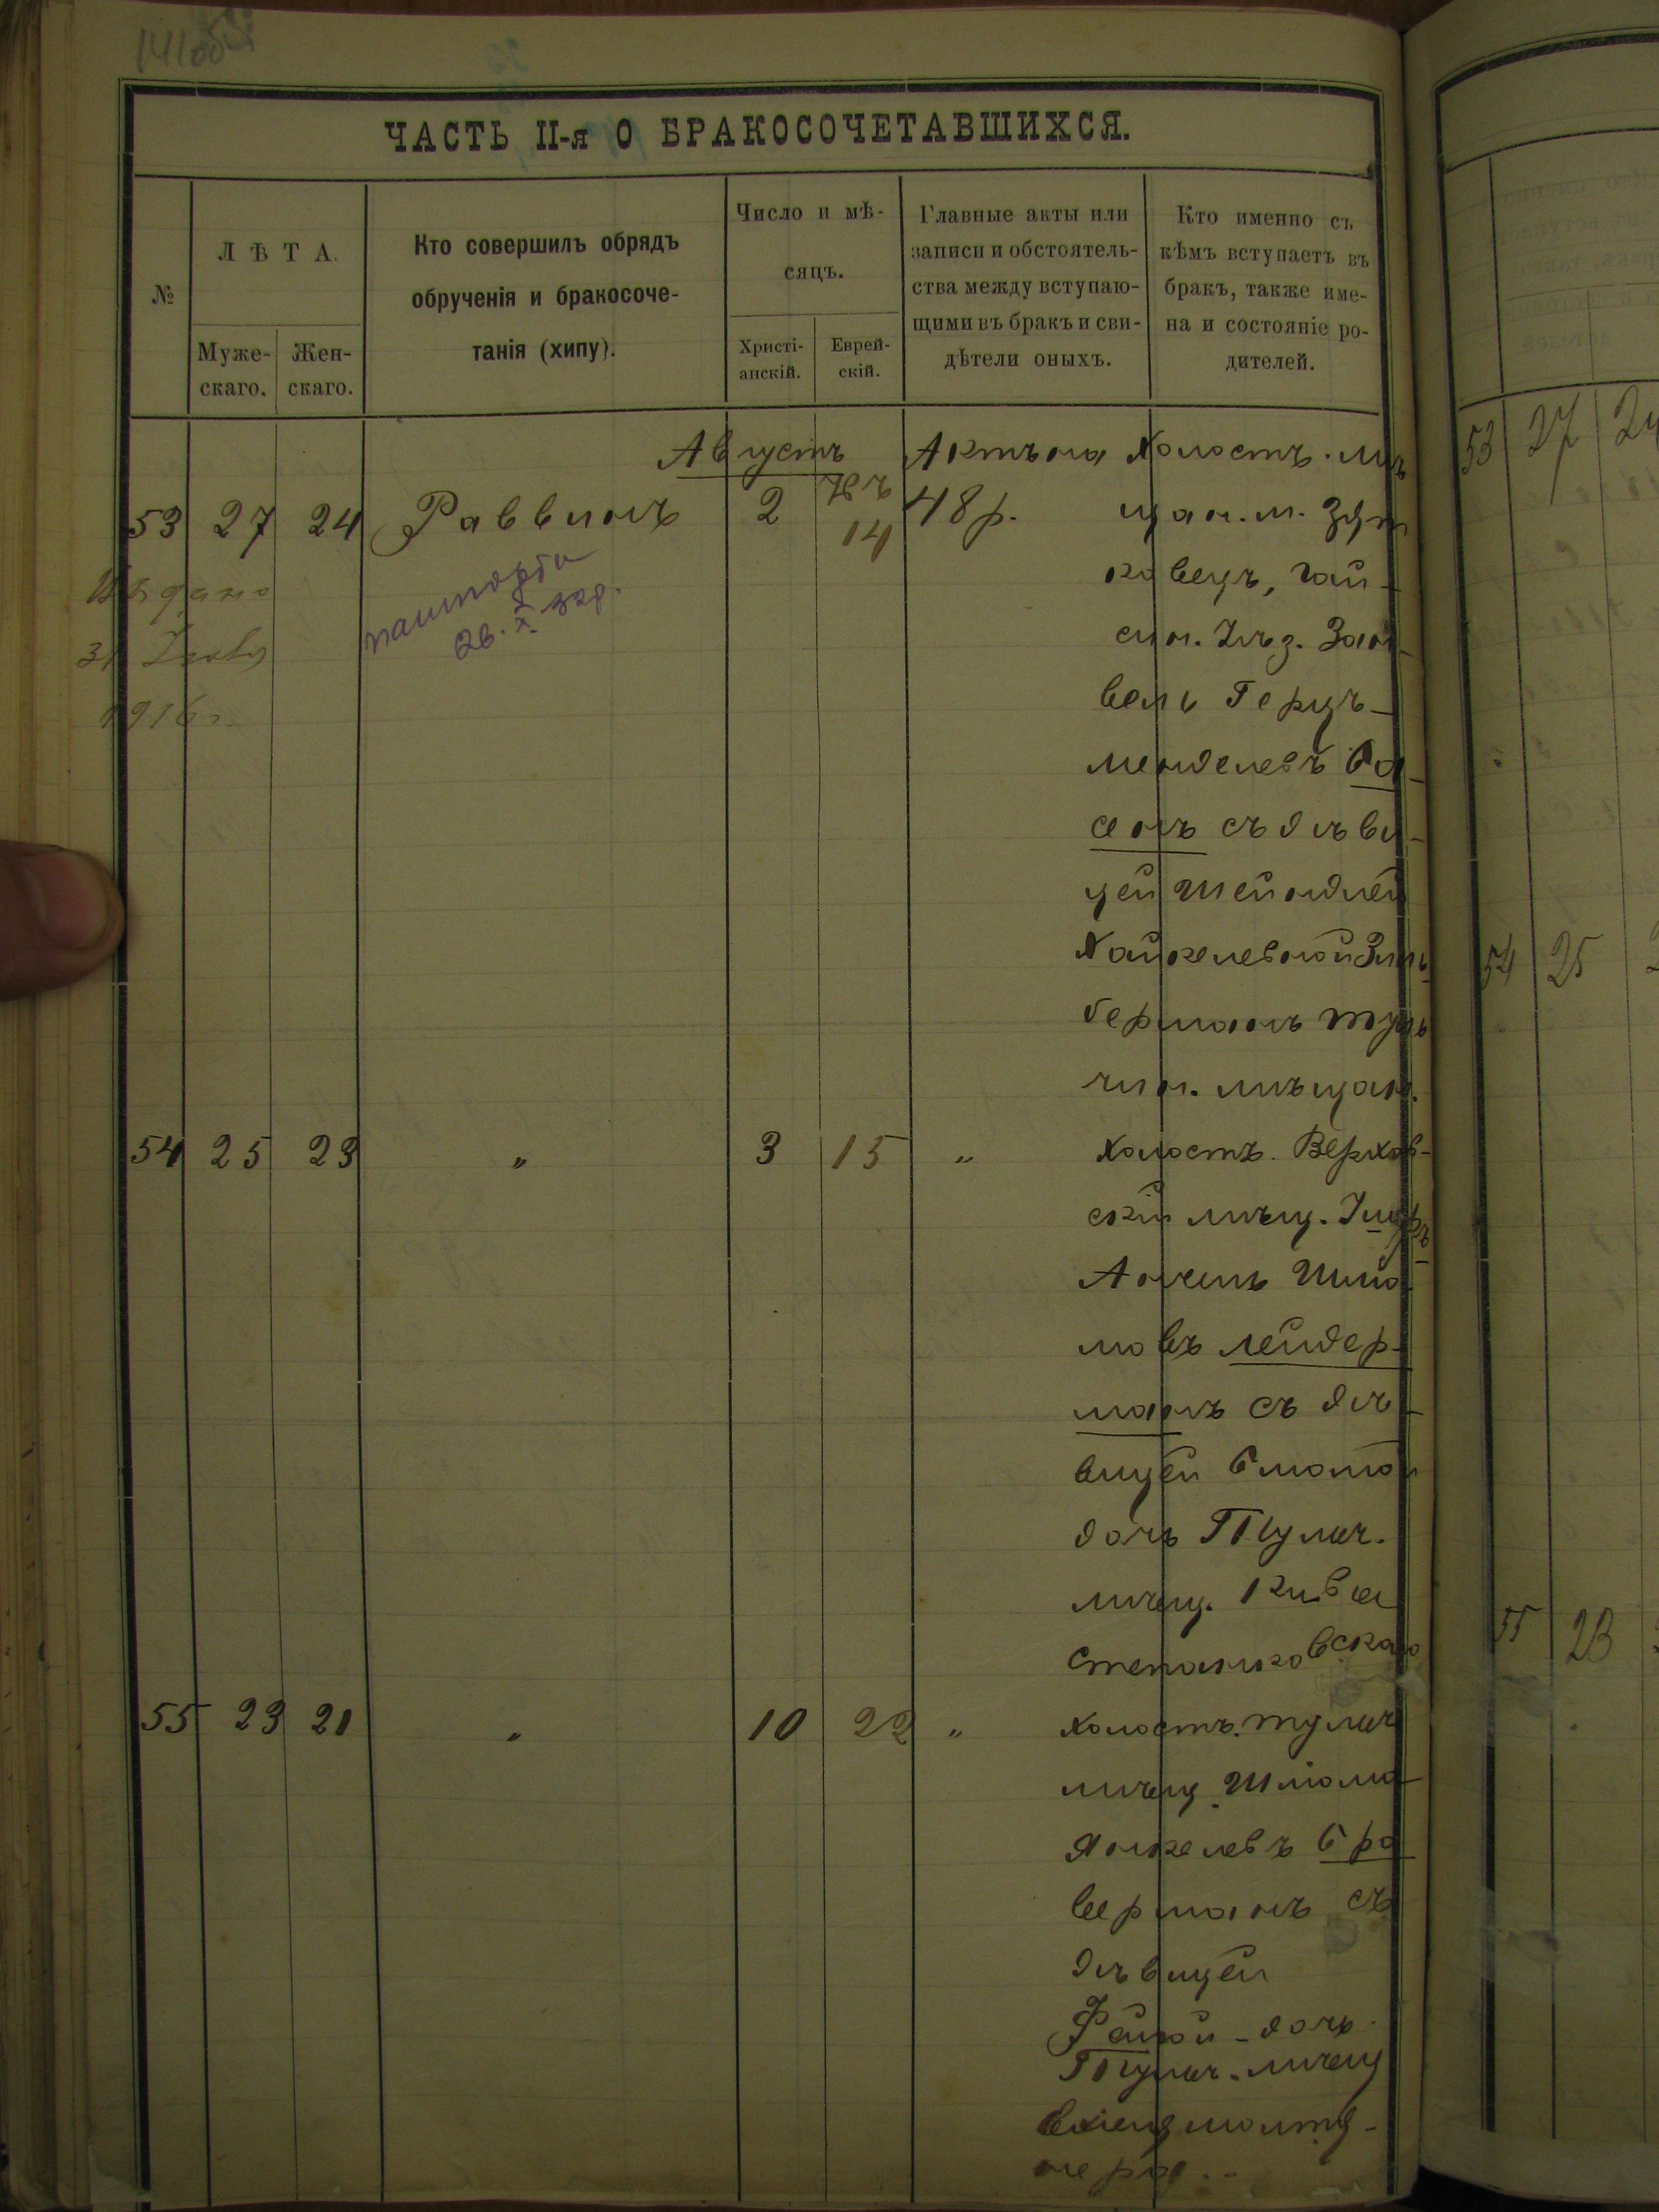 141об
ЧАСТЬ II-я О БРАКОСОЧЕТАВШИХСЯ.
№
ЛѢТА.
Муже-
скаго.
Жен-
скаго.
Кто совершилъ обрядъ
обрученія и бракосоче-
танія (хипу).
Число и мѣ-
сяцъ.
Христі-
анскій.
Еврей-
скій.
Главные акты или
записи и обстоятель-
ства между вступаю-
щими въ бракъ и сви-
дѣтели оныхъ.
Кто именно съ
кѣмъ вступаетъ въ
бракъ, также име-
на и состояніе ро-
дителей.
Августъ
53 27 24 Раввинъ 2 14 48 р.
Холостъ. мѣ
щан. м.
ковецъ, Гай-
син. уѣз. Зан
вель Герцъ-
менделевъ
сонъ съ дѣви-
цей Шейндлей
Хайкелевной Зиль
берманъ Туль
чин. мѣщан.
выдано
31
1916 г.
26. X 32р.
54 25 23 " 3 15 "
холостъ. Верхов-
скій мѣщ.
Анчель Шмо
мовъ Лейдер-
манъ съ дѣ-
вицей
дочь Тульч.
мѣщ. Кивы
Степанковскаго
55 23 21 " 10 22 "
холостъ. Тульч
мѣщ. Шлома
Янкелевъ Бра
верманъ съ
дѣвицей
Фейгой - дочь
Тульч. мѣщ
53 27 24
54 25
55 23